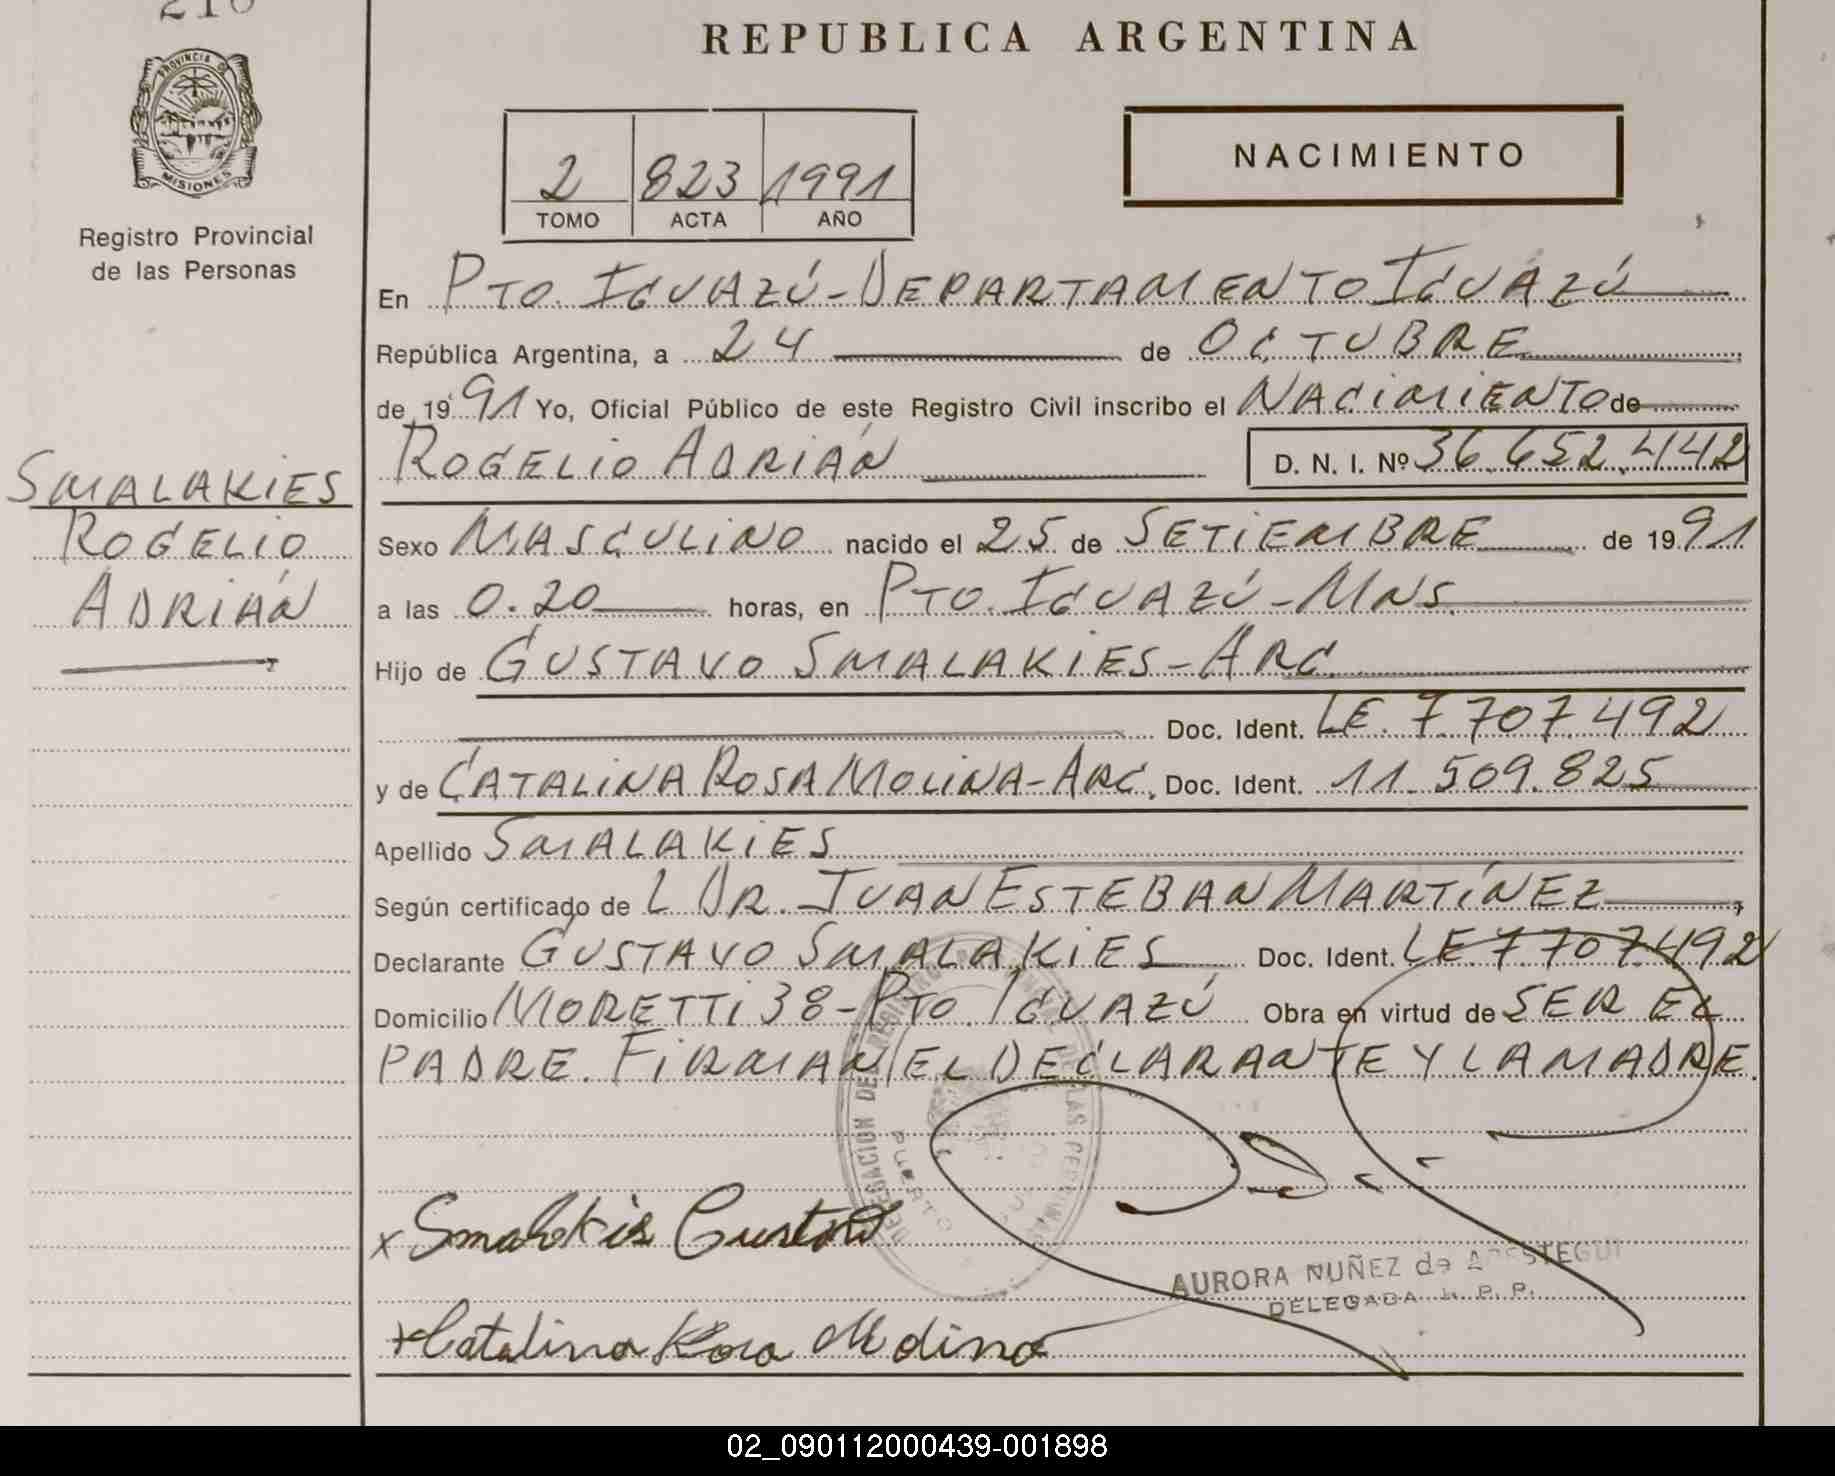 210
PROVINCIA DE
MISIONES
Registro Provincial
de las Personas
SMALAKIES
ROGELIO
ADRIÁN
REPUBLICA ARGENTINA
2 823 1991
TOMO ACTA AÑO
NACIMIENTO
En PTO. IGUAZÚ - DEPARTAMENTO IGUAZÚ
República Argentina, a 24 de OCTUBRE
de 19 91 Yo, Oficial Público de este Registro Civil inscribo el NACIMIENTO de
ROGELIO ADRIÁN D. N. I. Nº 36.652.442
Sexo MASCULINO nacido el 25 de SETIEMBRE de 19 91
a las 0.20 horas, en PTO. IGUAZÚ - MNS.
Hijo de GUSTAVO SMALAKIES - ARG.
Doc. Ident. LE. 7.707.492
y de CATALINA ROSA MOLINA - ARG. Doc. Ident. 11.509.825
Apellido SMALAKIES
Según certificado de L DR. JUAN ESTEBAN MARTÍNEZ,
Declarante GUSTAVO SMALAKIES Doc. Ident. LE 7.707.492
Domicilio MORETTI 38 - PTO. IGUAZÚ Obra en virtud de SER EL
PADRE. FIRMAN EL DECLARANTE Y LA MADRE.
DELEGACION DEL REGISTRO DE LAS PERSONAS
PUERTO
x Smalakies Gustavo
AURORA NUÑEZ de
DELEGADA
x Catalina Rosa Molina
02_090112000439-001898